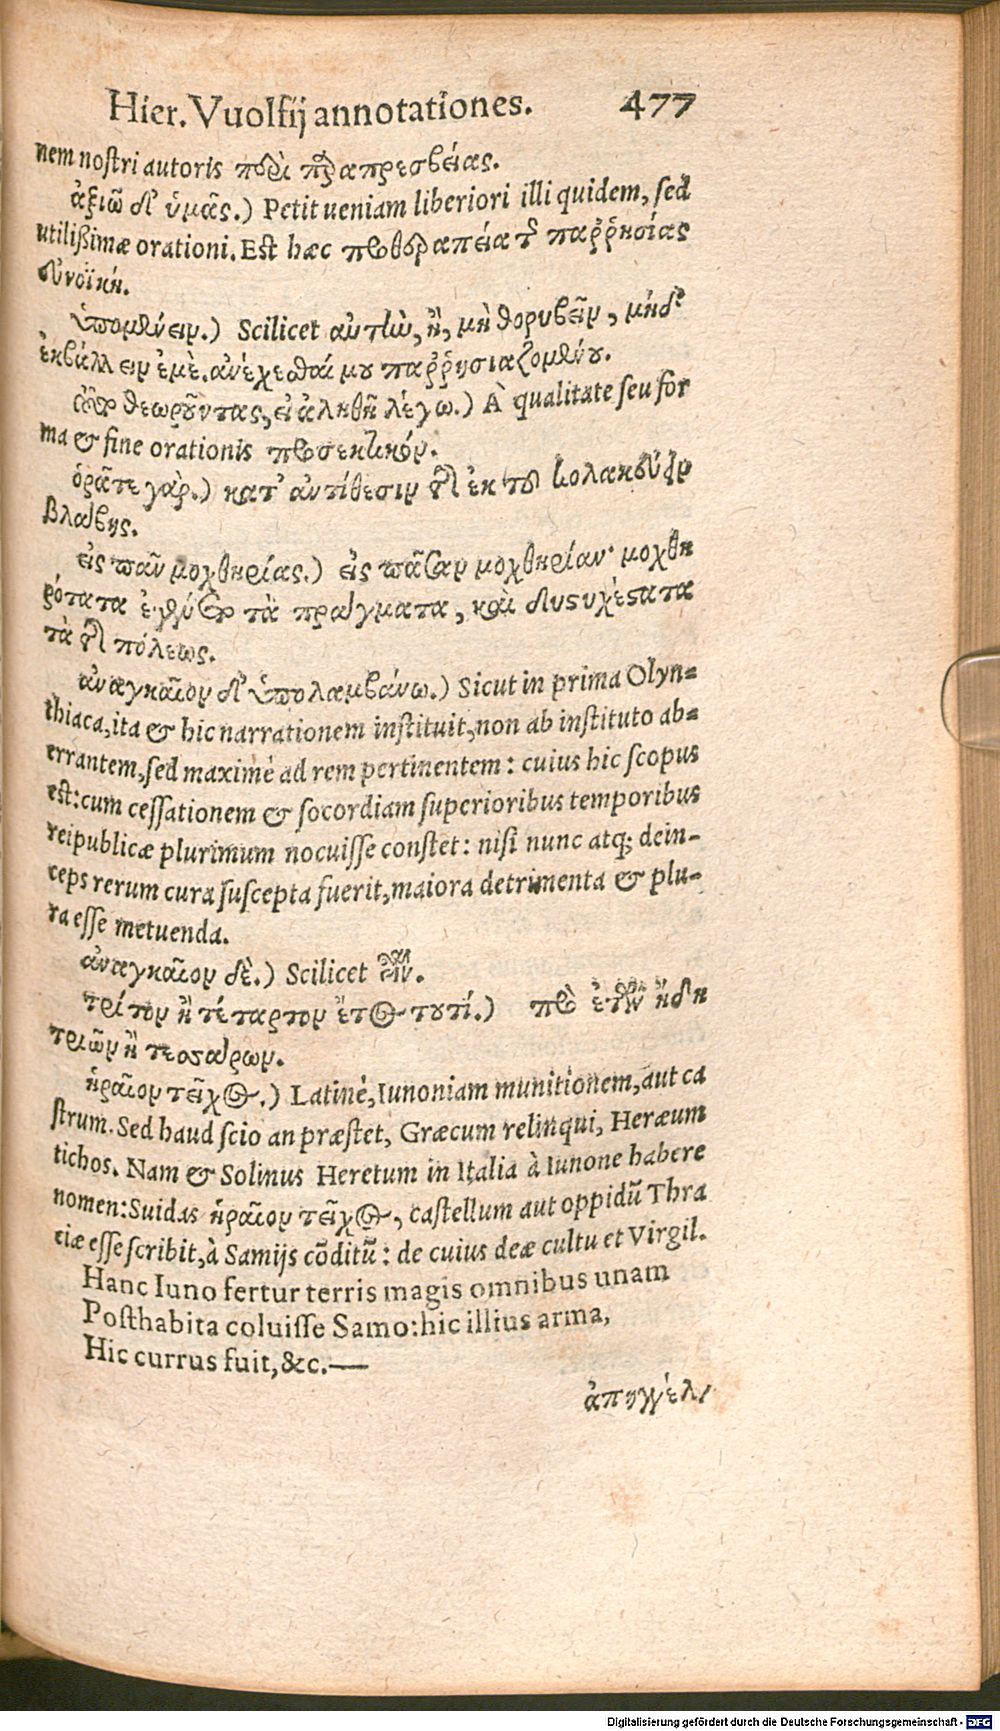 Hier. Vuolfij annotationes. 477
nem nostri autoris περὶ παραπρεσβείας.
ἀξιῶ δ' ὑμᾶς.) Petit ueniam liberiori illi quidem, sed
utilißimæ orationi. Est hæc προθεραπεία τῆς παῤῥησίας
συνοϊκή.
ὑπομένειν.) Scilicet αὐτὴν, ἢ, μὴ θορυβεῖν, μηδὲ
ἐκβάλλειν ἐμὲ. ἀνέχεσθαί μου παῤῥησιαζομένου.
θεωροῦντας, εἰ ἀληθῆ λέγω.) À qualitate seu for
ma & fine orationis προσεκτικόν.
ὁρᾶτε γὰρ.) κατ' ἀντίθεσιν τῆς ἐκ τοῦ κολακεύειν
βλάβης.
εἰς πᾶν μοχθηρίας.) εἰς πᾶσαν μοχθηρίαν· μοχθη
ρότατα ἔχουσιν τὰ πράγματα, καὶ δυστυχέστατα
τὰ τῆς πόλεως.
ἀναγκαῖον δ' ὑπολαμβάνω.) Sicut in prima Olyn-
thiaca, ita & hic narrationem instituit, non ab instituto ab-
errantem, sed maximè ad rem pertinentem: cuius hic scopus
est: cum cessationem & socordiam superioribus temporibus
reipublicæ plurimum nocuisse constet: nisi nunc atq; dein-
ceps rerum cura suscepta fuerit, maiora detrimenta & plu-
ra esse metuenda.
ἀναγκαῖον δὲ.) Scilicet εἶναι.
τρίτον ἢ τέταρτον ἔτος τουτί.) πρὸ ἐτῶν ἤδη
τριῶν ἢ τεσσάρων.
ἡραῖον τεῖχος.) Latinè, Iunoniam munitionem, aut ca
strum. Sed haud scio an præstet, Græcum relinqui, Heræum
tichos. Nam & Solinus Heretum in Italia à Iunone habere
nomen: Suidas ἡραῖον τεῖχος, castellum aut oppidũ Thra
ciæ esse scribit, à Samijs cõditũ: de cuius deæ cultu et Virgil.
Hanc Iuno fertur terris magis omnibus unam
Posthabita coluisse Samo: hic illius arma,
Hic currus fuit, &c.—
ἀπηγγέλ/
Digitalisierung gefördert durch die Deutsche Forschungsgemeinschaft - DFG